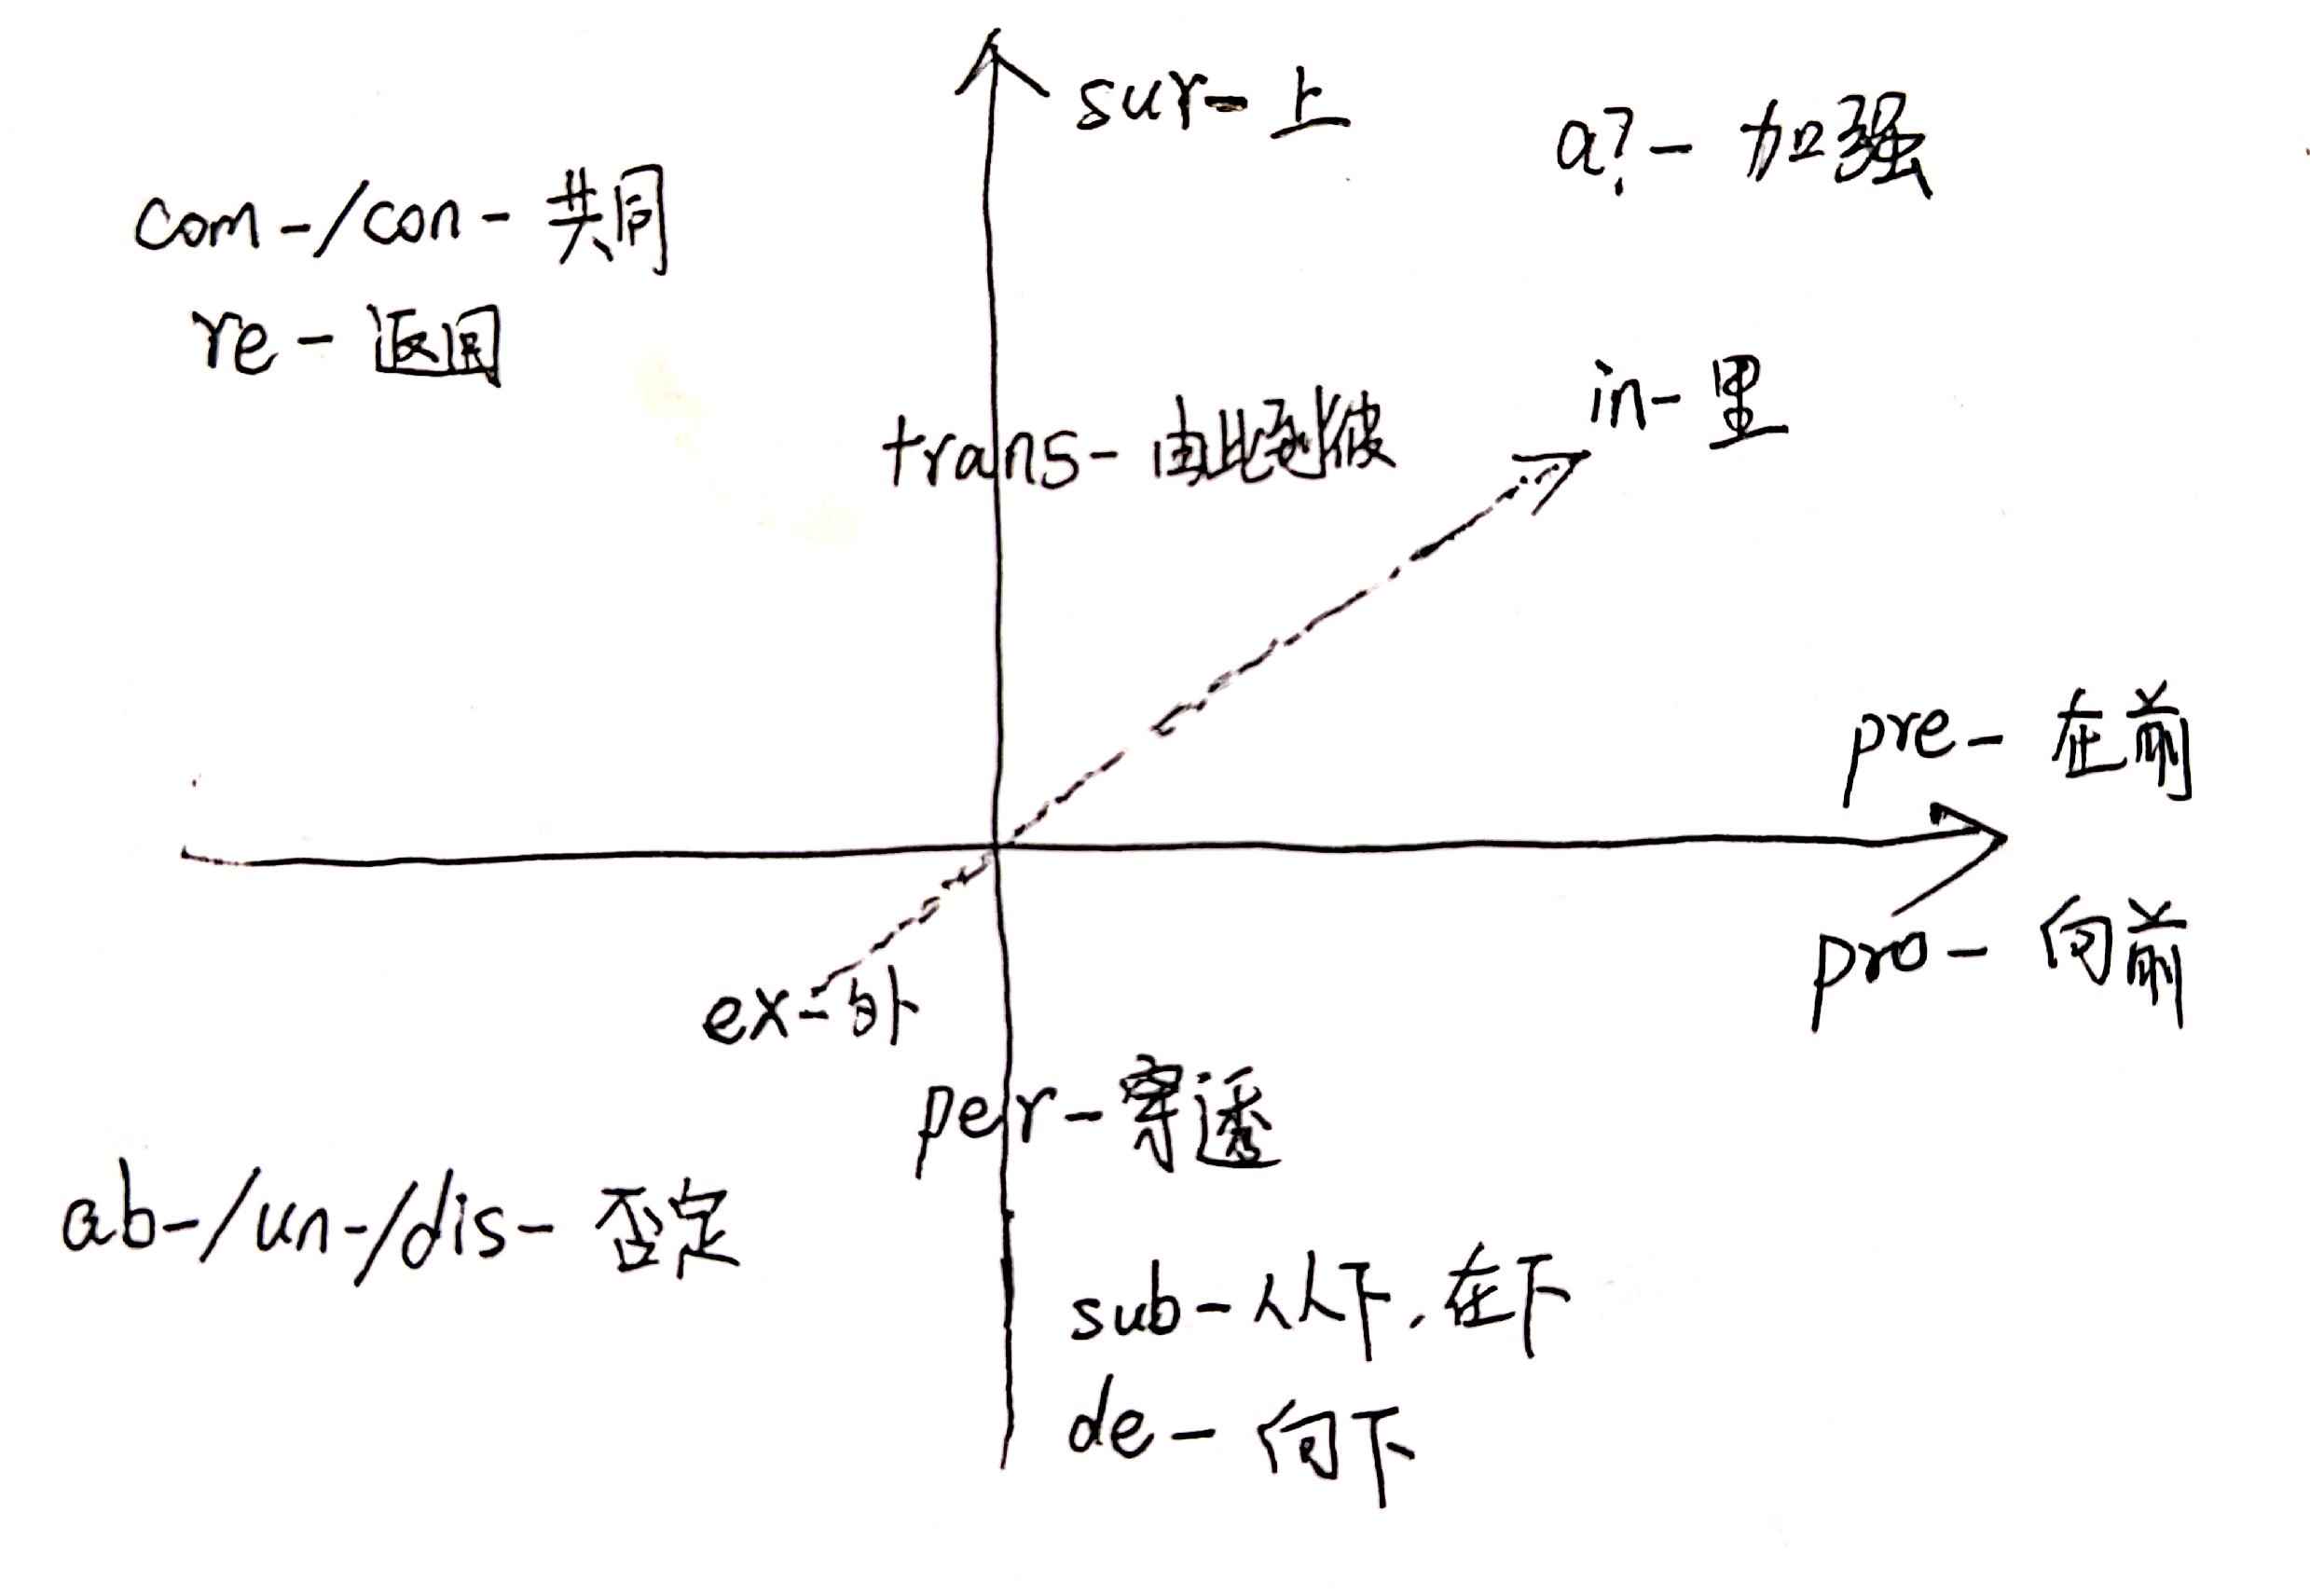 sur- 上
a?- 加强
com-/con- 共同
re- 返回
trans- 由此到彼
in- 里
pre- 在前
pro- 向前
ex- 外
per- 穿透
ab-/un-/dis- 否定
sub- 从下,在下
de- 向下